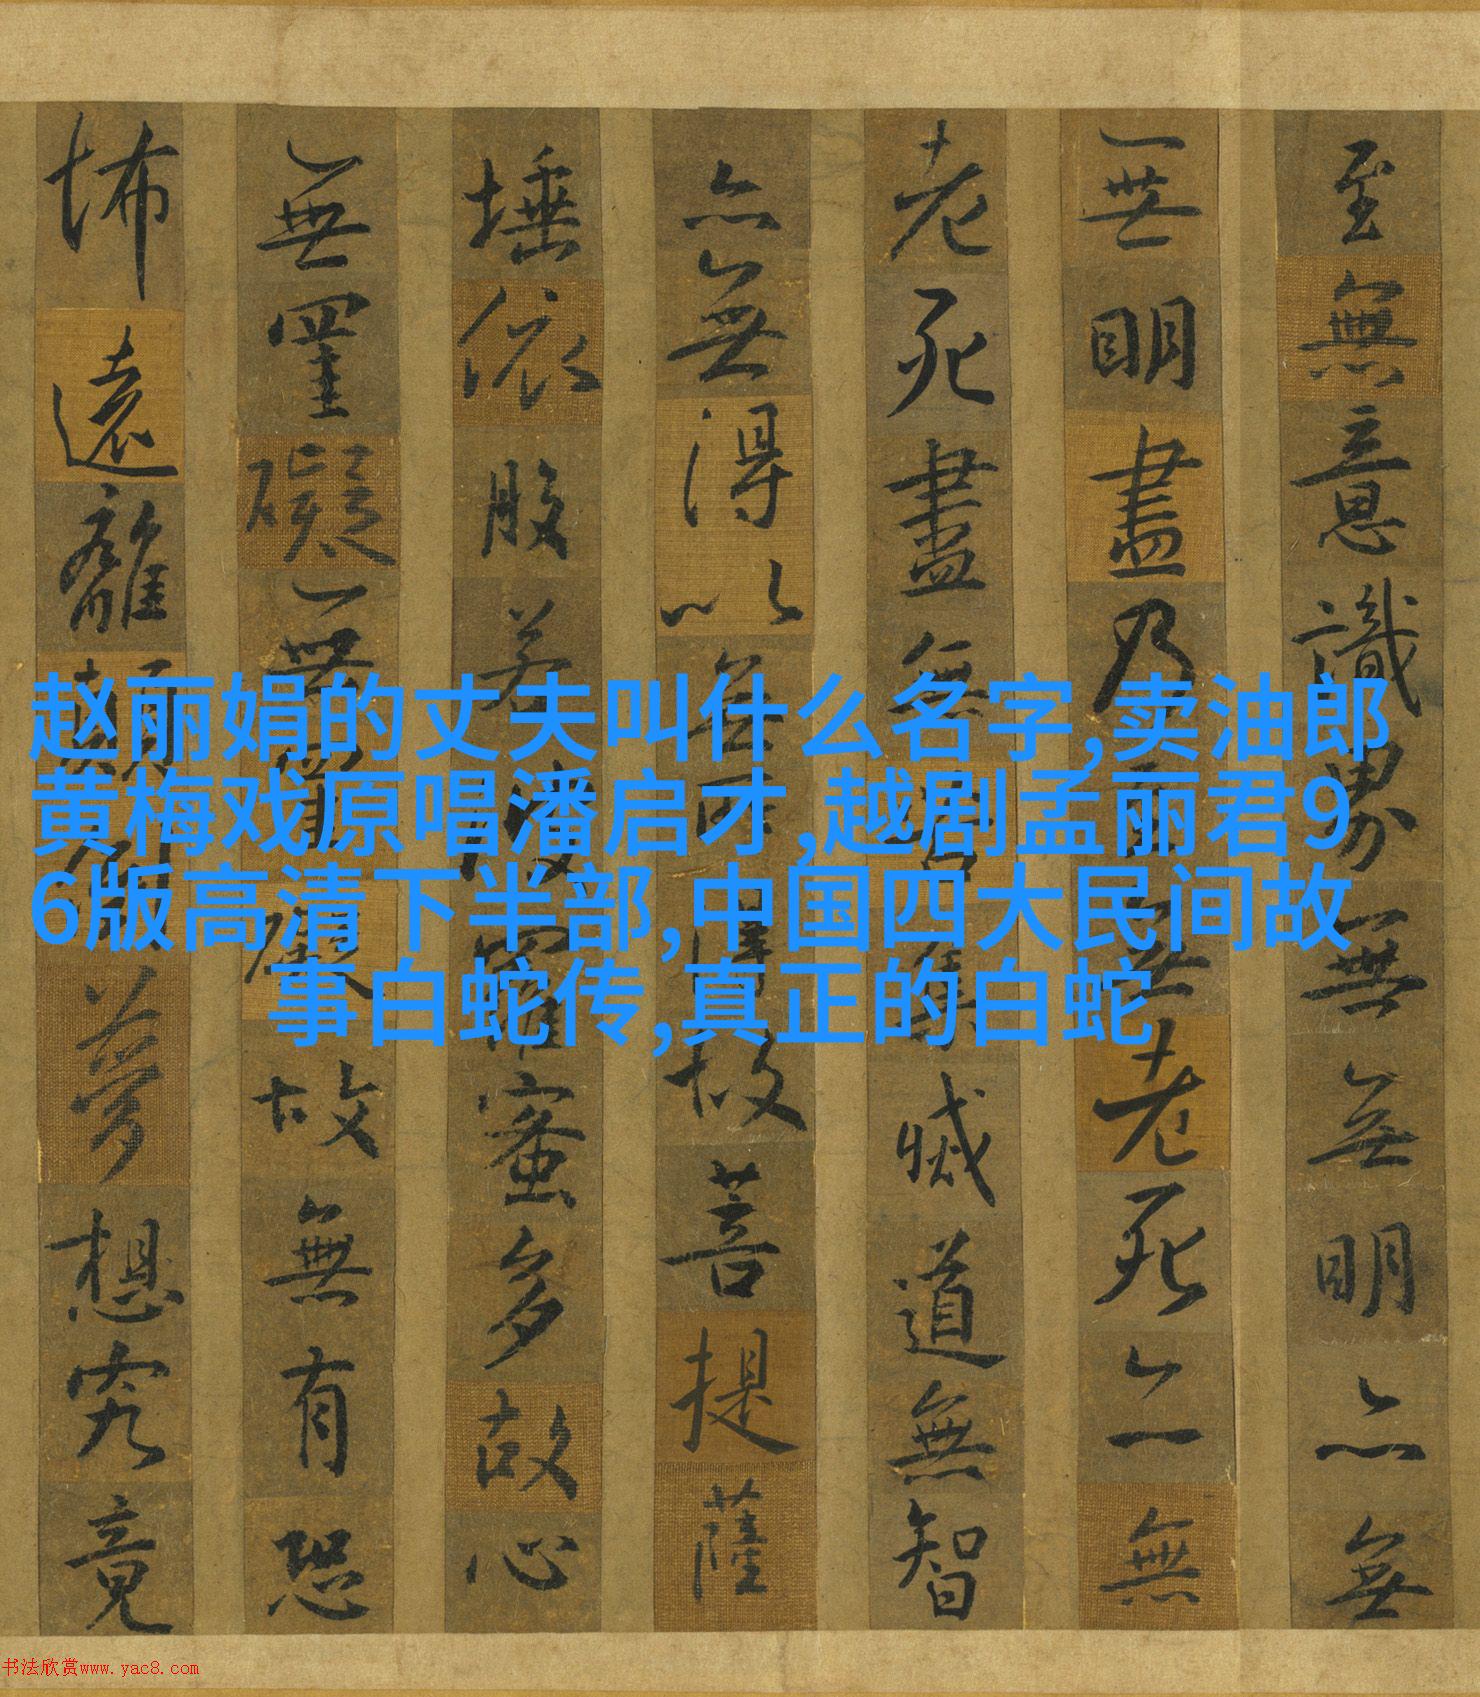 至無意識界無無明亦無
無明盡乃至無老死亦無
老死盡無苦集滅道無智
亦無得以無所得故菩提薩
埵依般若波羅蜜多故心
無罣礙無罣礙故無有恐
怖遠離顛倒夢想究竟
赵丽娟的丈夫叫什么名字,卖油郎
黄梅戏原唱潘启才,越剧孟丽君9
6版高清下半部,中国四大民间故
事白蛇传,真正的白蛇
书法欣赏www.yac8.com